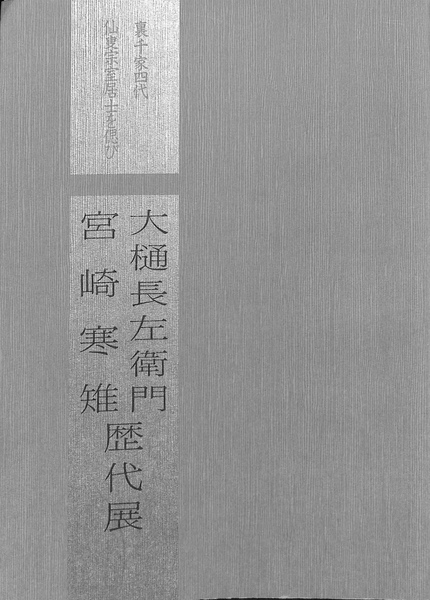 裏千家四代
仙叟宗室居士を偲び
大樋長左衛門
宮崎寒雉
歴代展